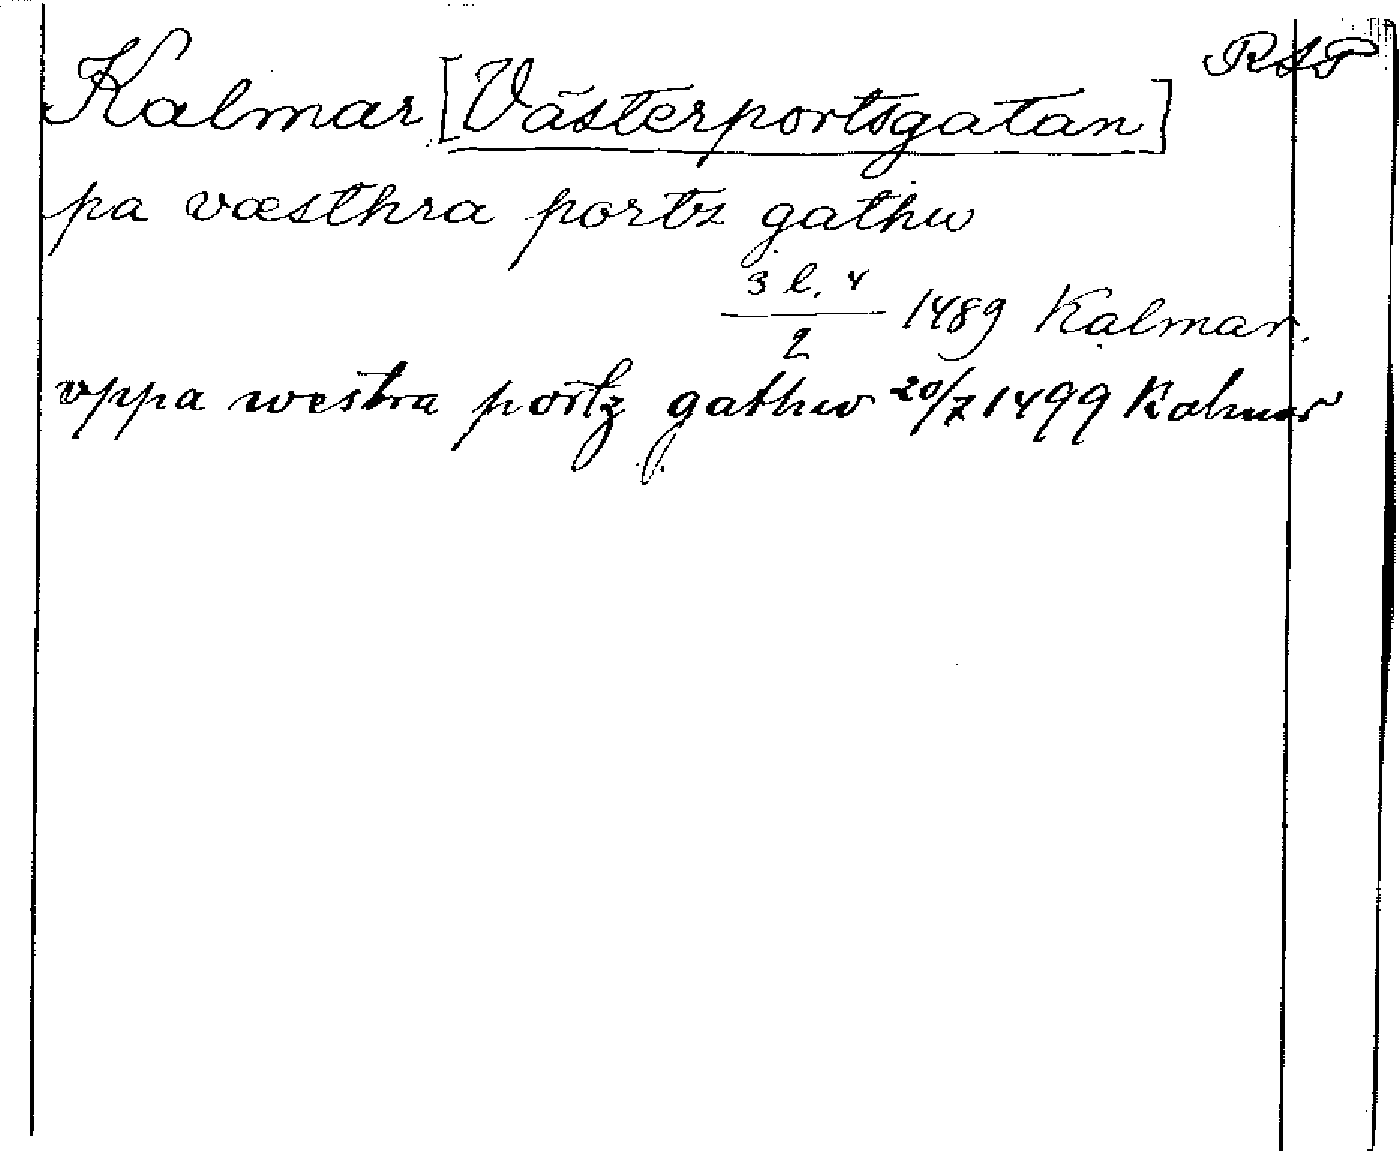 RAP
Kalmar [Västerportsgatan]
pa væsthra portz gathw
3 l. 4 / 2 1489 Kalmar.
vppa westra portz gathw 20/7 1499 Kalmar